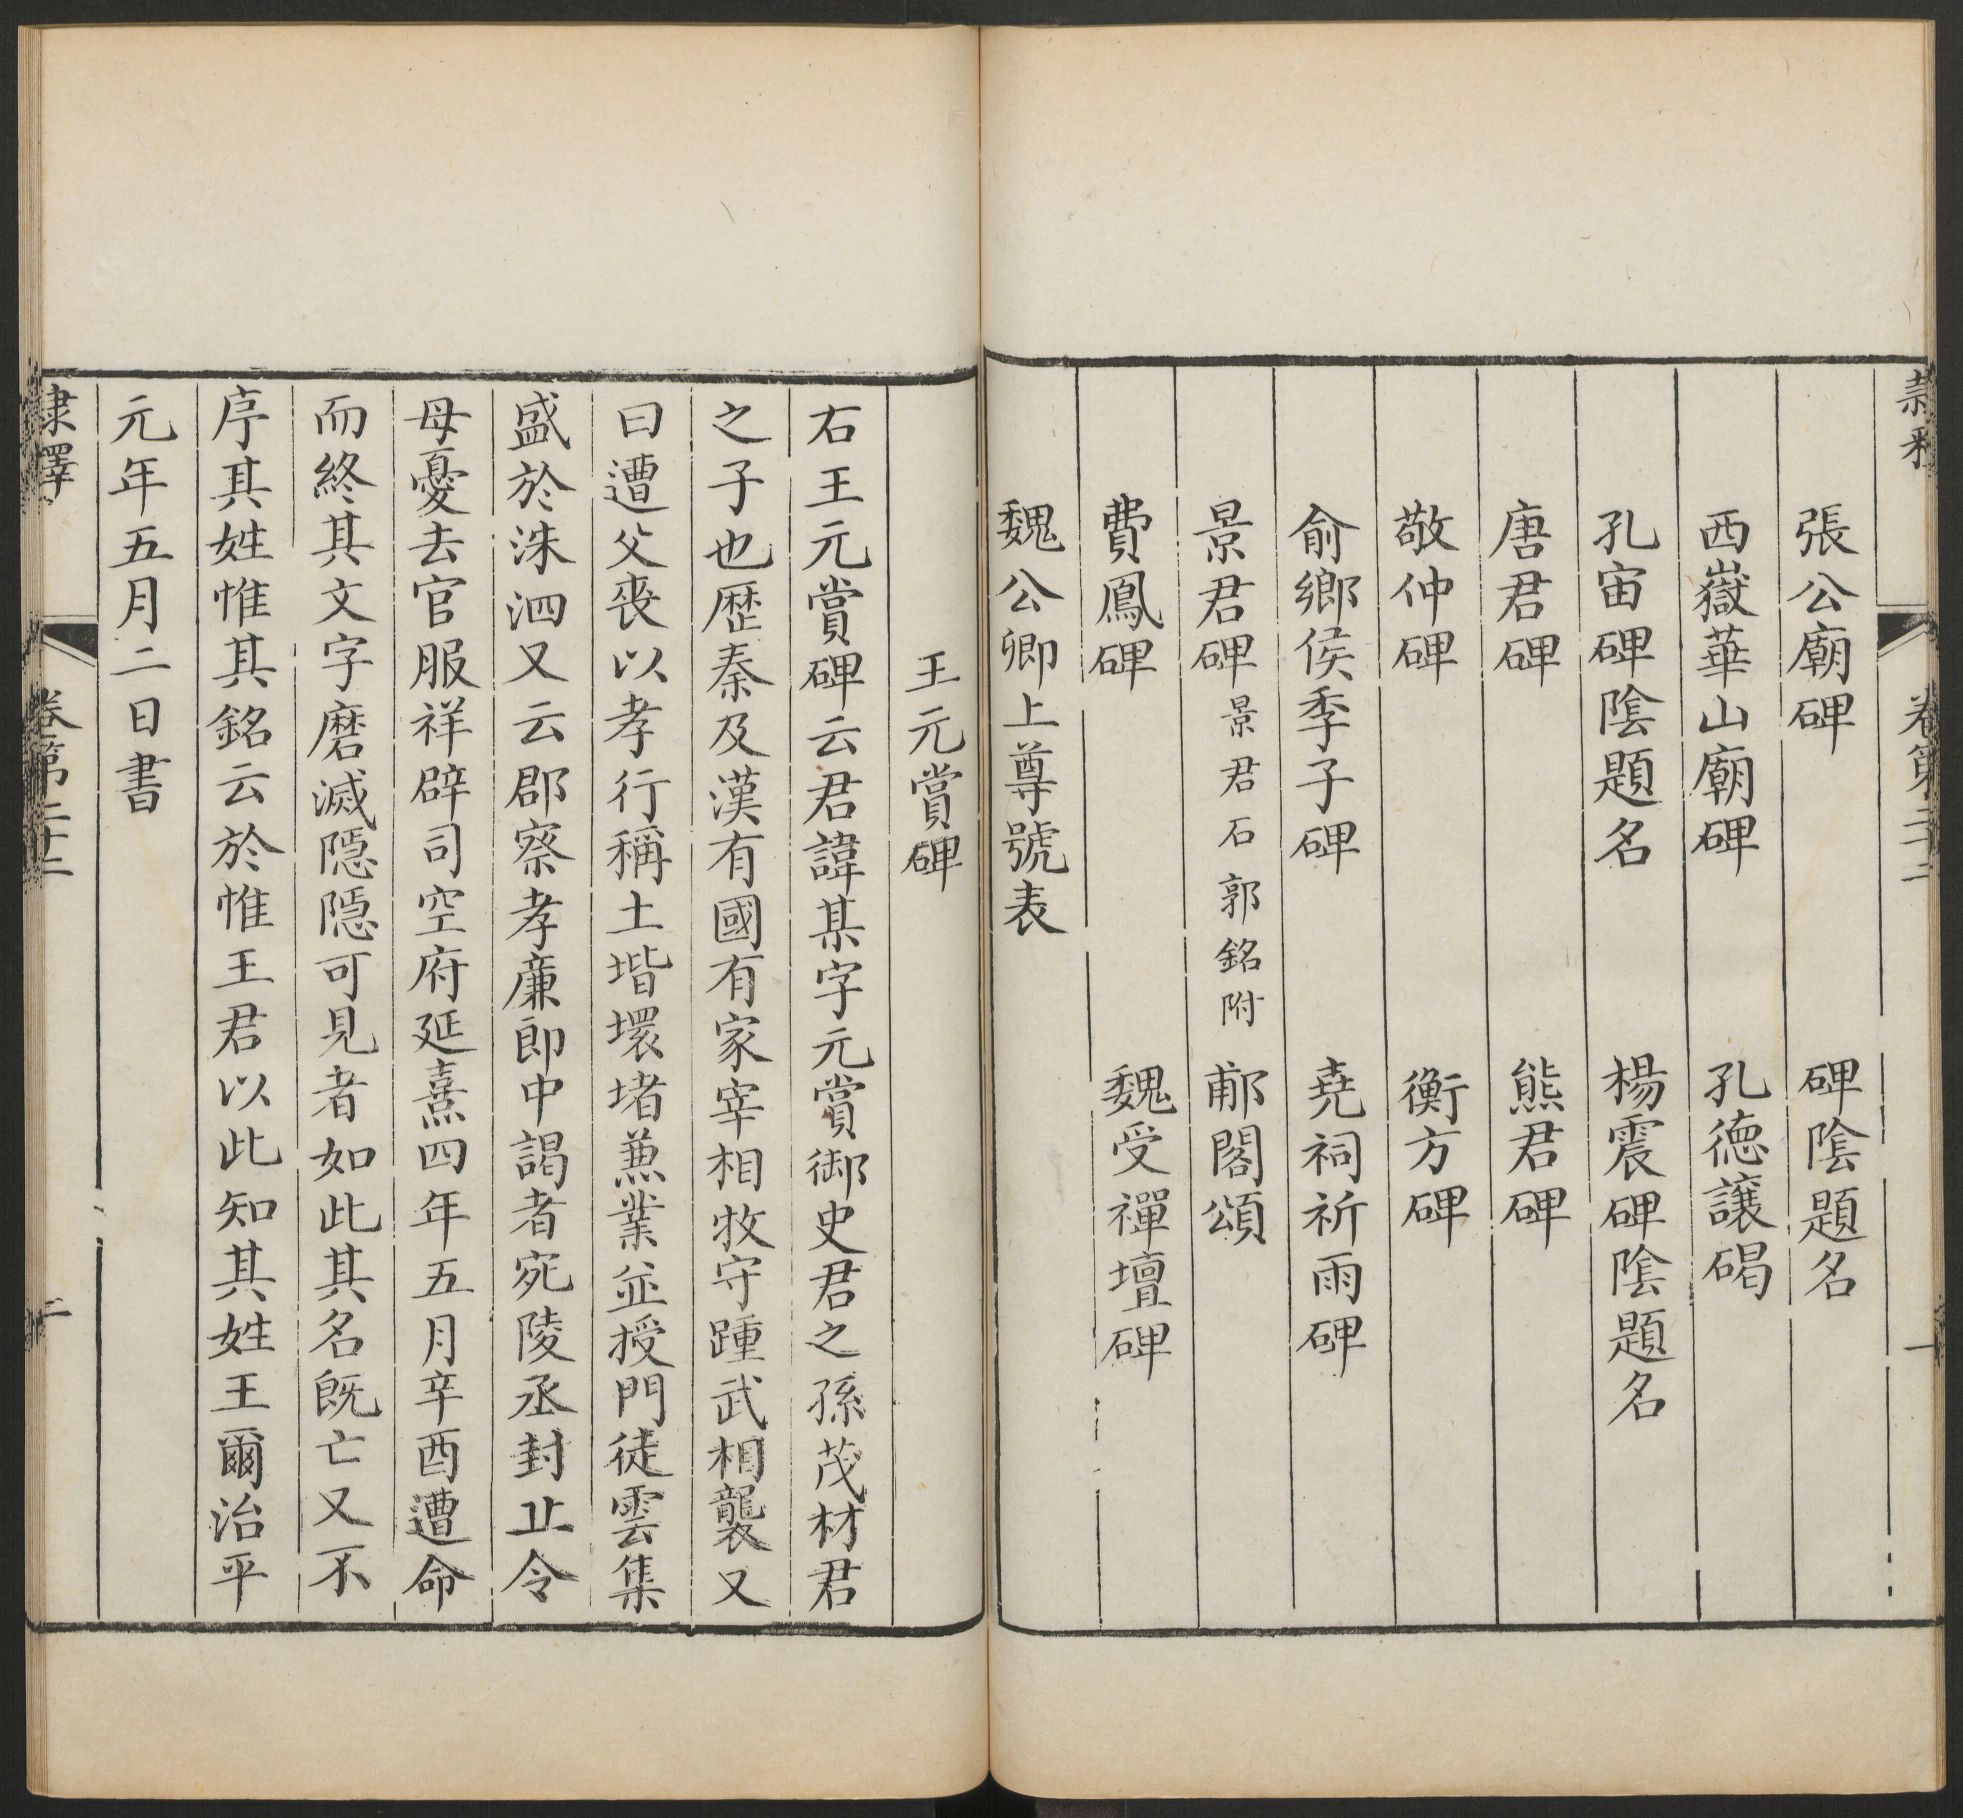 隸釋 卷第二十二 一
張公廟碑 碑陰題名
西嶽華山廟碑 孔德讓碣
孔宙碑陰題名 楊震碑陰題名
唐君碑 熊君碑
敬仲碑 衡方碑
俞鄉侯季子碑 堯祠祈雨碑
景君碑景君石郭銘附 郙閣頌
費鳳碑 魏受禪壇碑
魏公卿上尊號表
王元賞碑
右王元賞碑云君諱某字元賞御史君之孫茂材君
之子也歷秦及漢有國有家宰相牧守踵武相襲又
曰遭父喪以孝行稱土堦環堵蕉業並授門徒雲集
盛於洙泗又云郡察孝廉郎中謁者宛陵丞封丘令
母憂去官服祥辟司空府延熹四年五月辛酉遭命
而終其文字磨滅隱隱可見者如此其名既亡又不
序其姓惟其銘云於惟王君以此知其姓王爾治平
元年五月二日書
隸釋 卷第二十二 二